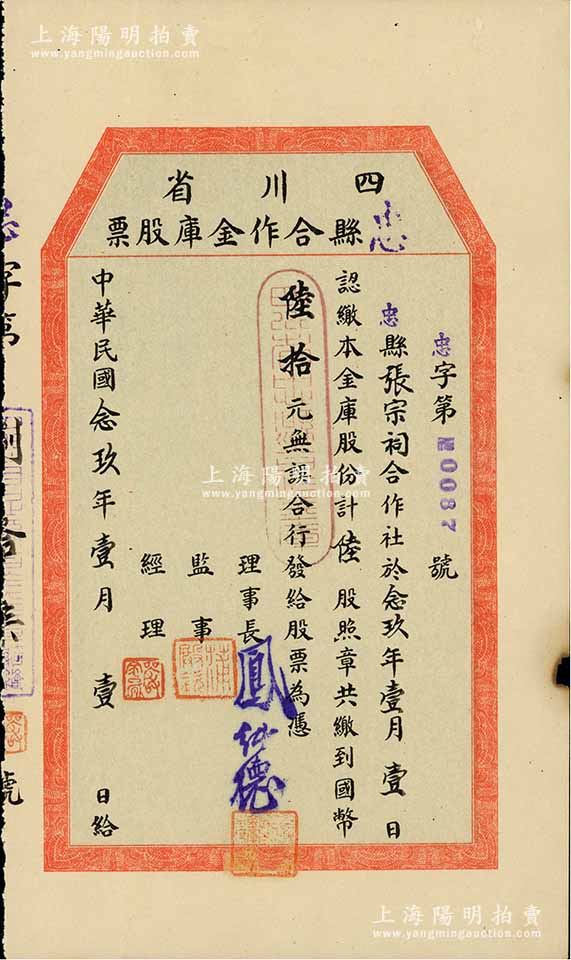 上海陽明拍賣
www.yangmingauction.com
四川省
忠縣合作金庫股票
忠字第№0087號
忠縣張宗祠合作社於念玖年壹月壹日
認繳本金庫股份計陸股照章共繳到國幣
陸拾元無訛合行發給股票為憑
理事長
監事
經理
中華民國念玖年壹月壹日給
忠字第
號
上海陽明拍賣
www.yangmingauction.com
上海陽明拍賣
www.yangmingauction.com